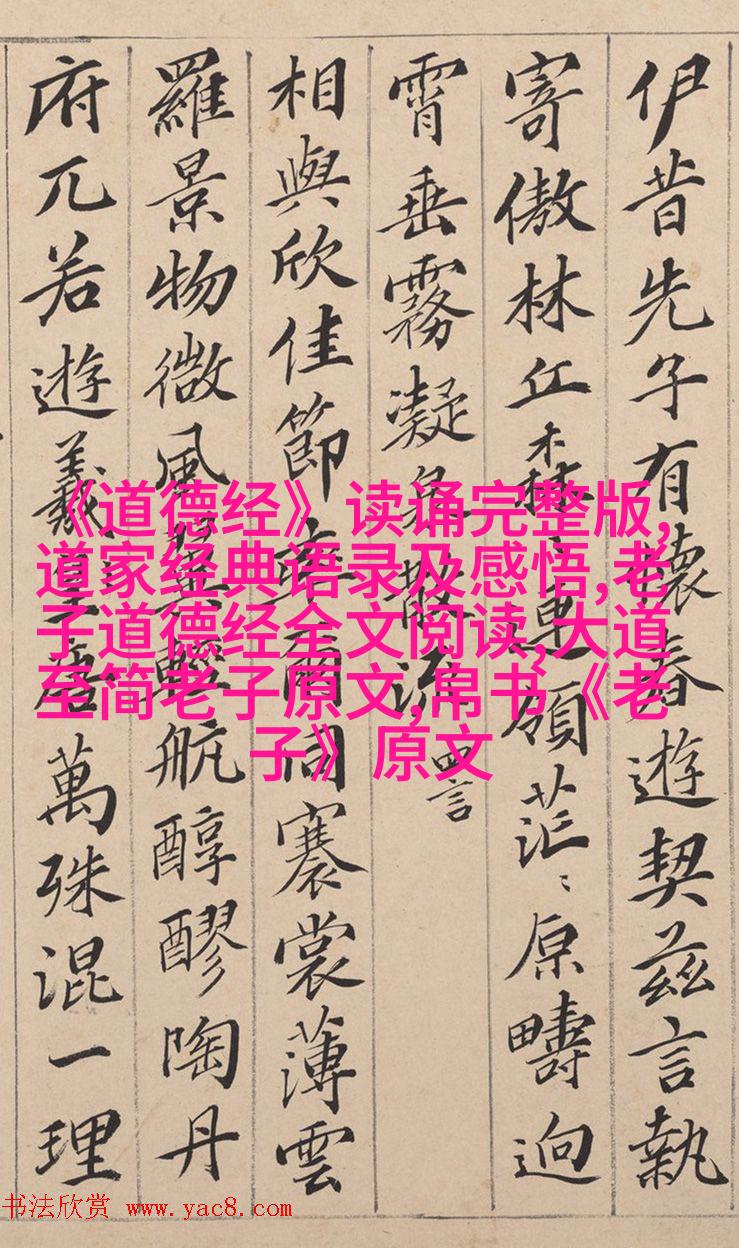 伊昔先子有懷春遊契茲言執
寄傲林丘森連領茫〻原疇迥
霄垂霧凝泉散流 四言
相與欣佳節率爾同褰裳薄雲
羅景物微風翼輕航醇醪陶丹
府兀若遊羲唐萬殊混一理
《道德经》读诵完整版,
道家经典语录及感悟,老
子道德经全文阅读,大道
至简老子原文,帛书《老
子》原文
书法欣赏 www.yac8.com